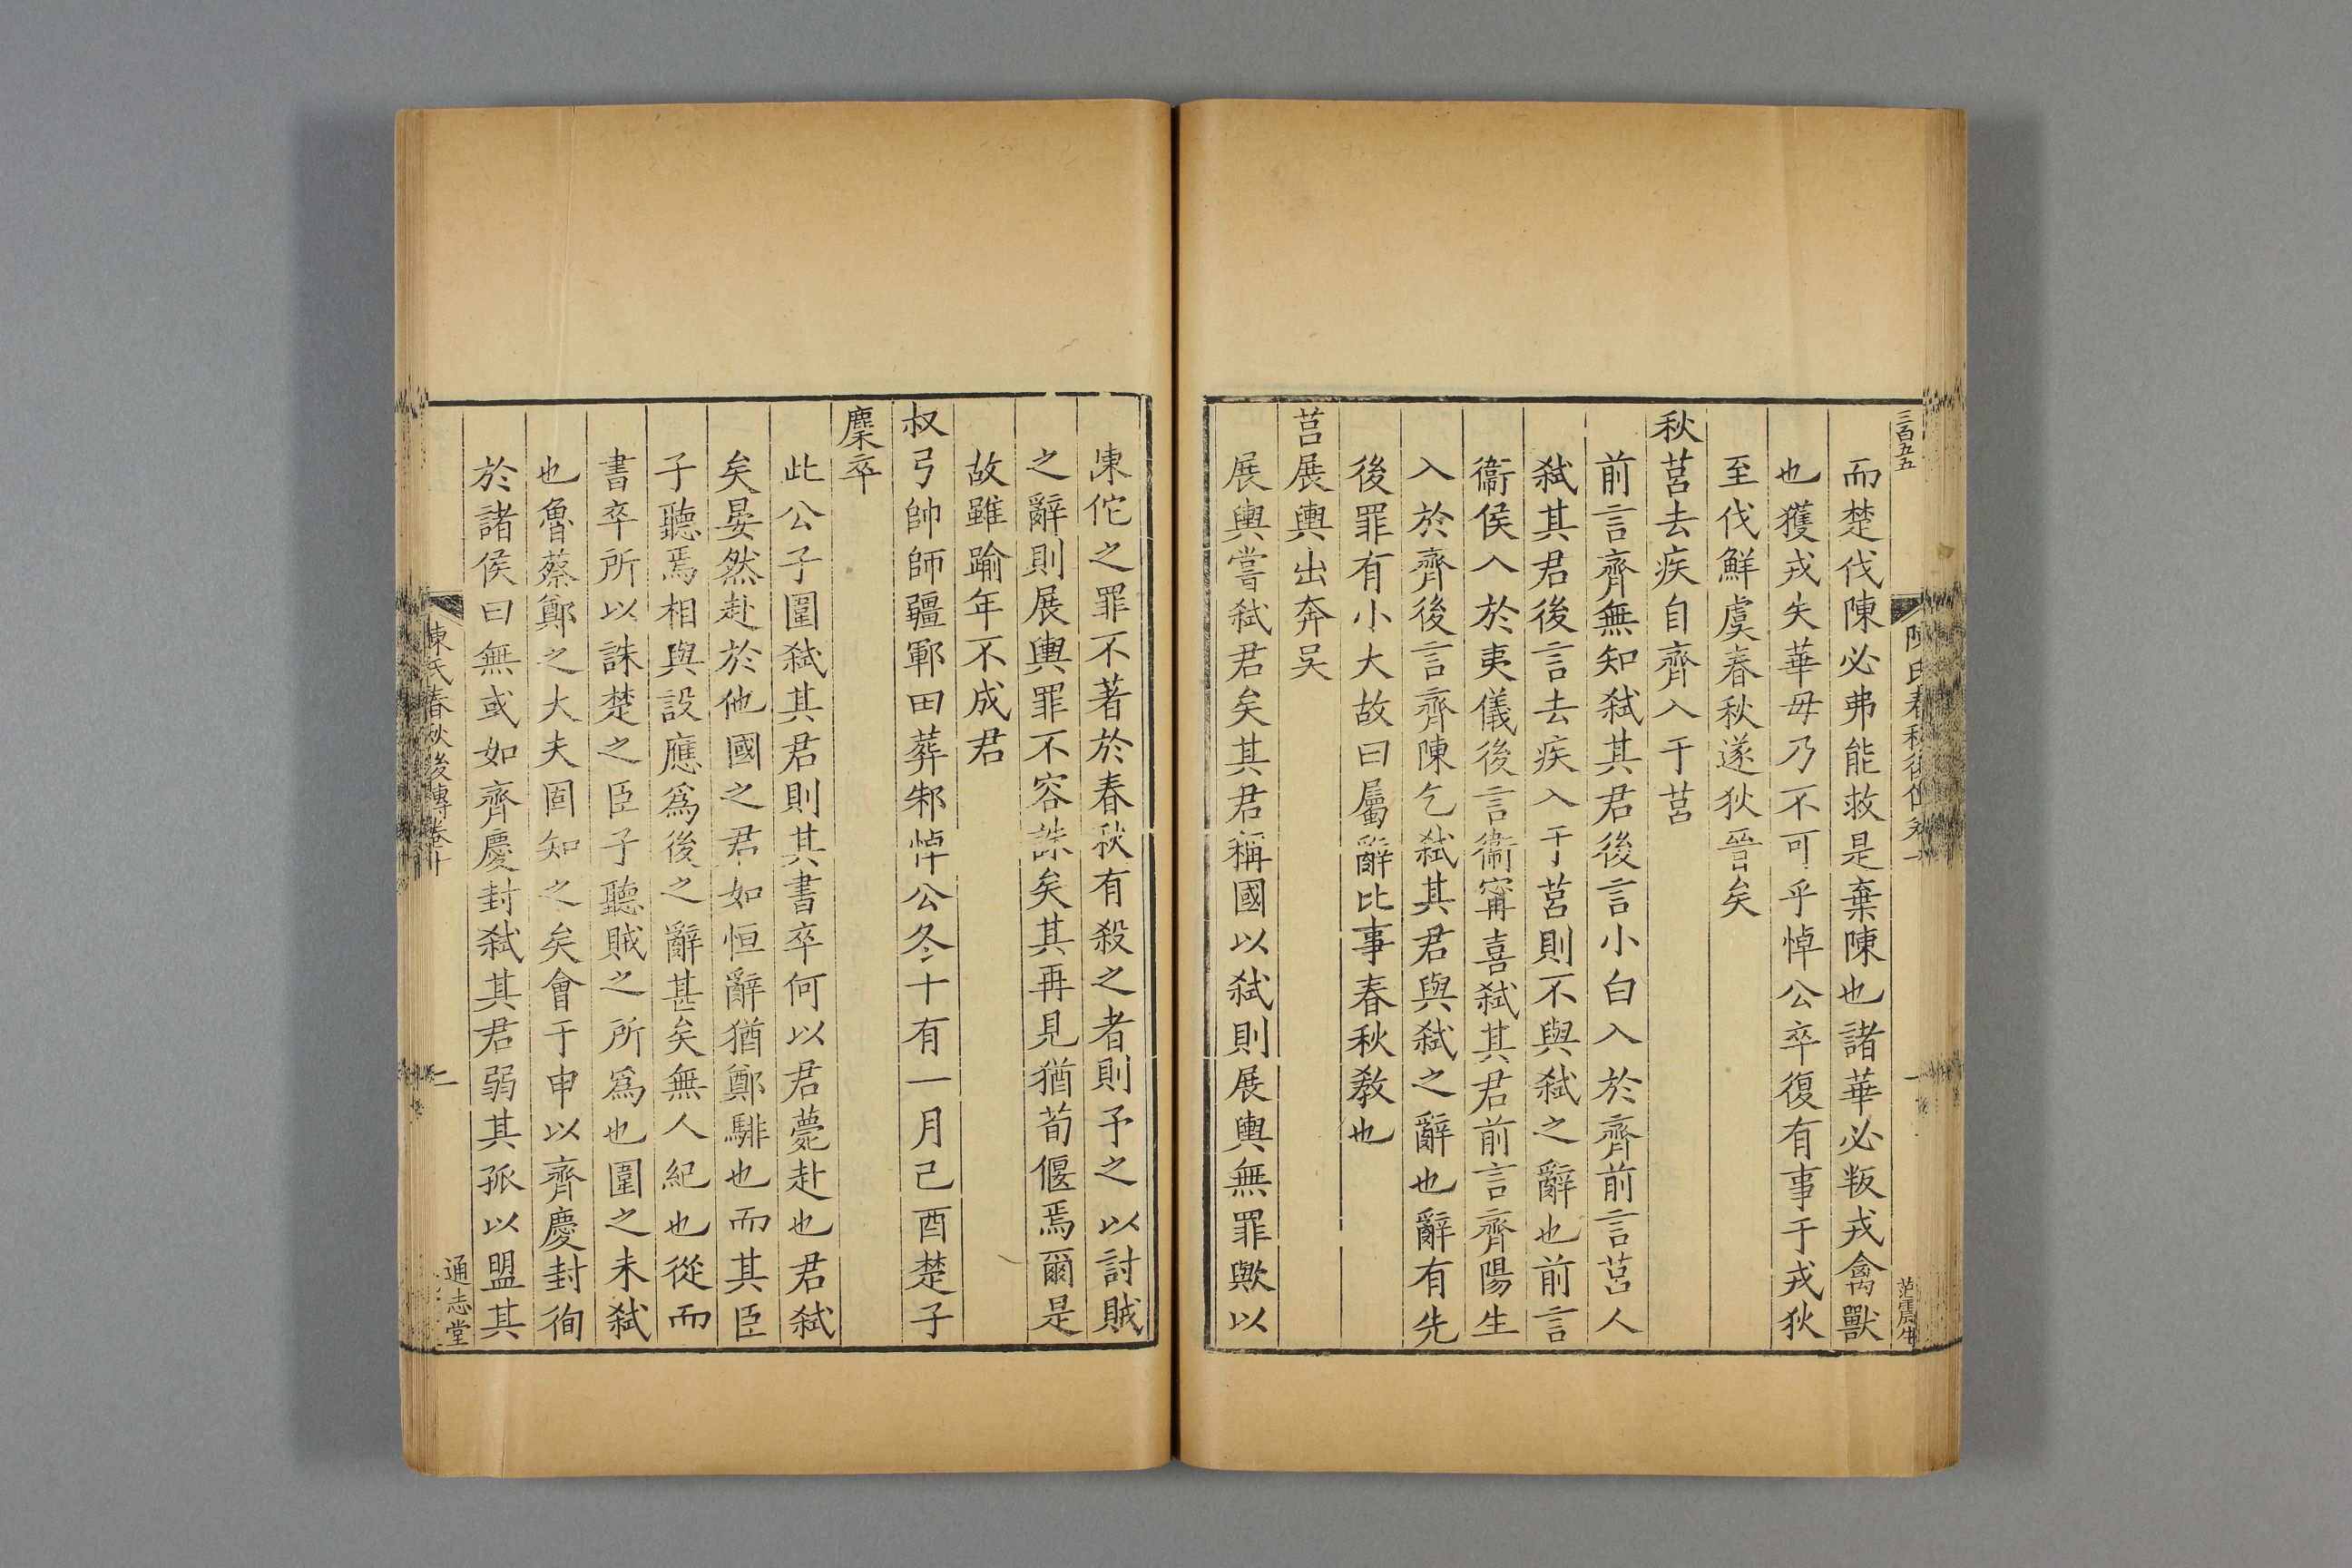 三百五五
陳氏春秋後傳卷十
一
范震生
而楚伐陳必弗能救是棄陳也諸華必叛戎禽獸
也獲戎失華毋乃不可乎悼公卒復有事于戎狄
至伐鮮虞春秋遂狄晉矣
秋莒去疾自齊入于莒
前言齊無知弑其君後言小白入於齊前言莒人
弑其君後言去疾入于莒則不與弑之辭也前言
衞侯入於夷儀後言衞甯喜弑其君前言齊陽生
入於齊後言齊陳乞弑其君與弑之辭也辭有先
後罪有小大故曰屬辭比事春秋教也
莒展輿出奔吴
展輿嘗弑君矣其君稱國以弑則展輿無罪歟以
陳佗之罪不著於春秋有殺之者則予之以討賊
之辭則展輿罪不容誅矣其再見猶荀偃焉爾是
故雖踰年不成君
叔弓帥師疆鄆田葬邾悼公冬十有一月己酉楚子
麇卒
此公子圍弑其君則其書卒何以君薨赴也君弑
矣晏然赴於他國之君如恒辭猶鄭騑也而其臣
子聽焉相與設應爲後之辭甚矣無人紀也從而
書卒所以誅楚之臣子聽賊之所爲也圍之未弑
也魯蔡鄭之大夫固知之矣會于申以齊慶封徇
於諸侯曰無或如齊慶封弑其君弱其孤以盟其
陳氏春秋後傳卷十
二
通志堂